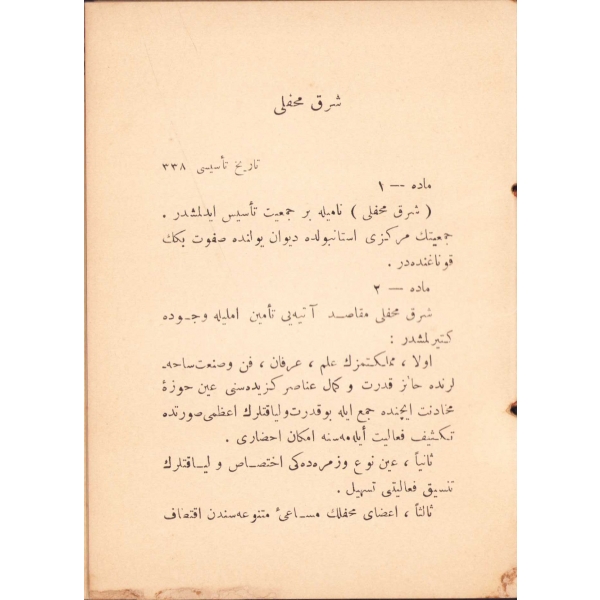 شرق محفلى
تاريخ تأسيسى ٣٣٨
ماده — ١
( شرق محفلى ) ناميله بر جمعيت تأسيس ايدلمشدر .
جمعيتك مركزى استانبولده ديوان يولنده صفوت بكك
قوناغنده‌در .
ماده — ٢
شرق محفلى مقاصد آتيه‌يى تأمين امليله وجوده
كتيرلمشدر :
اولا ، مملكتمزك علم ، عرفان ، فن وصنعت ساحه‌ـ
لرنده حائز قدرت و كمال عناصر كزيده‌سنى عين حوزۀ
مخادنت ايچنده جمع ايله بوقدرت ولياقتلرك اعظمى صورتده
تكثيف فعاليت أيله‌مه‌سنه امكان احضارى .
ثانياً ، عين نوع وزمره‌ده‌كى اختصاص و لياقتلرك
تنسيق فعاليتى تسهيل .
ثالثاً ، اعضاى محفلك مساعئ متنوعه‌سندن اقتطاف